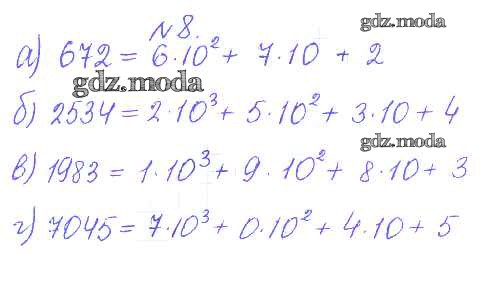 № 8.
gdz.moda
а) 672 = 6·10² + 7·10 + 2
gdz.moda
б) 2534 = 2·10³ + 5·10² + 3·10 + 4
gdz.moda
в) 1983 = 1·10³ + 9·10² + 8·10 + 3
г) 7045 = 7·10³ + 0·10² + 4·10 + 5